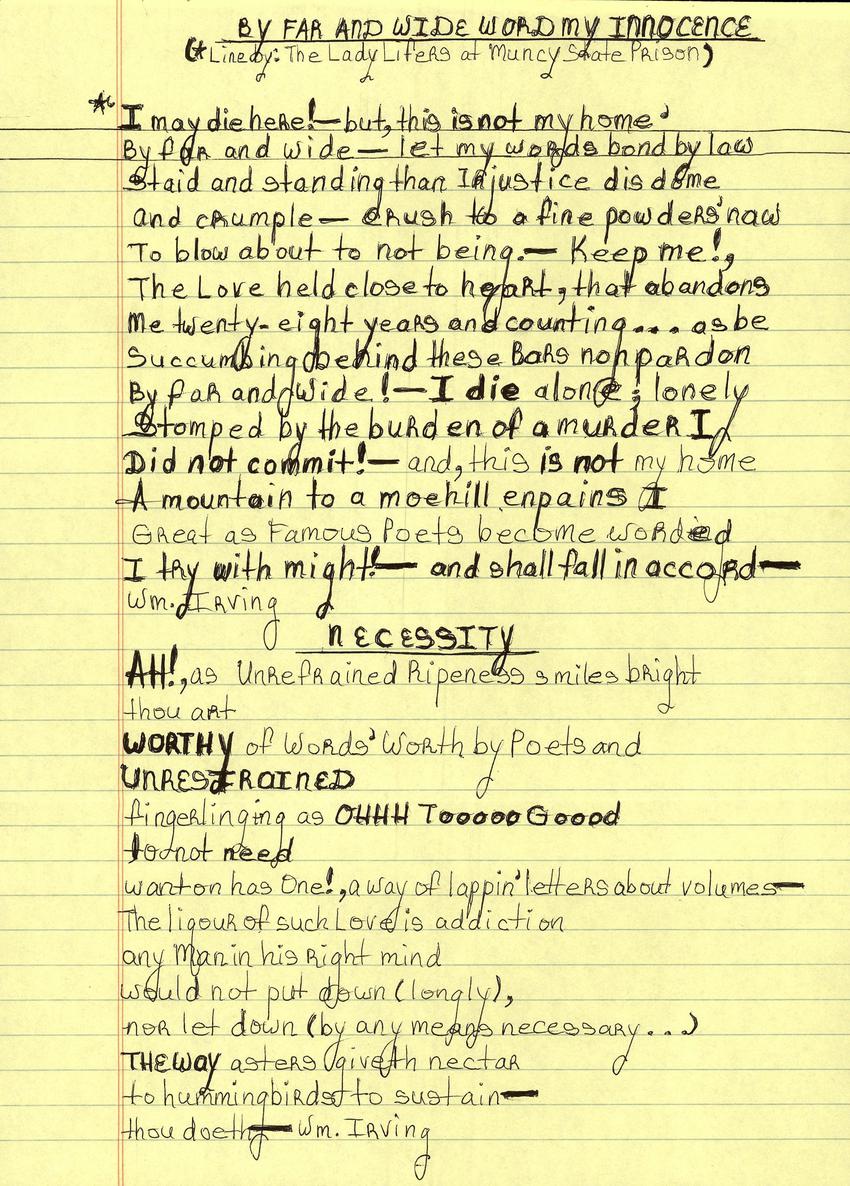 BY FAR AND WIDE WORD MY INNOCENCE
(*Line by: The Lady Lifers at Muncy State Prison)
* I may die here!—but, this is not my home'
By far and wide— let my words bond by law
Staid and standing than Injustice dis dome
and crumple— crush to a fine powders' naw
To blow about to not being.— Keep me!,
The Love held close to heart, that abandons
Me twenty-eight years and counting... as be
Succumbing behind these Bars noh pardon
By far and Wide!—I die alone; lonely
Stomped by the burden of a murder I,
Did not commit!— and, this is not my home
A mountain to a moehill enpains I
Great as Famous Poets become worded
I try with might!— and shall fall in accord—
Wm. Irving
NECESSITY
AH!, as Unrefrained Ripeness smiles bright
thou art
WORTHY of Words' Worth by Poets and
UNRESTRAINED
fingerlinging as OHHH Tooooo Goood
to not need
wanton has One!, a way of lappin' letters about volumes—
The liqour of such Love is addiction
any Man in his Right mind
would not put down (longly),
nor let down (by any means necessary...)
THE WAY asters giveth nectar
to hummingbirds to sustain—
thou doeth— Wm. Irving